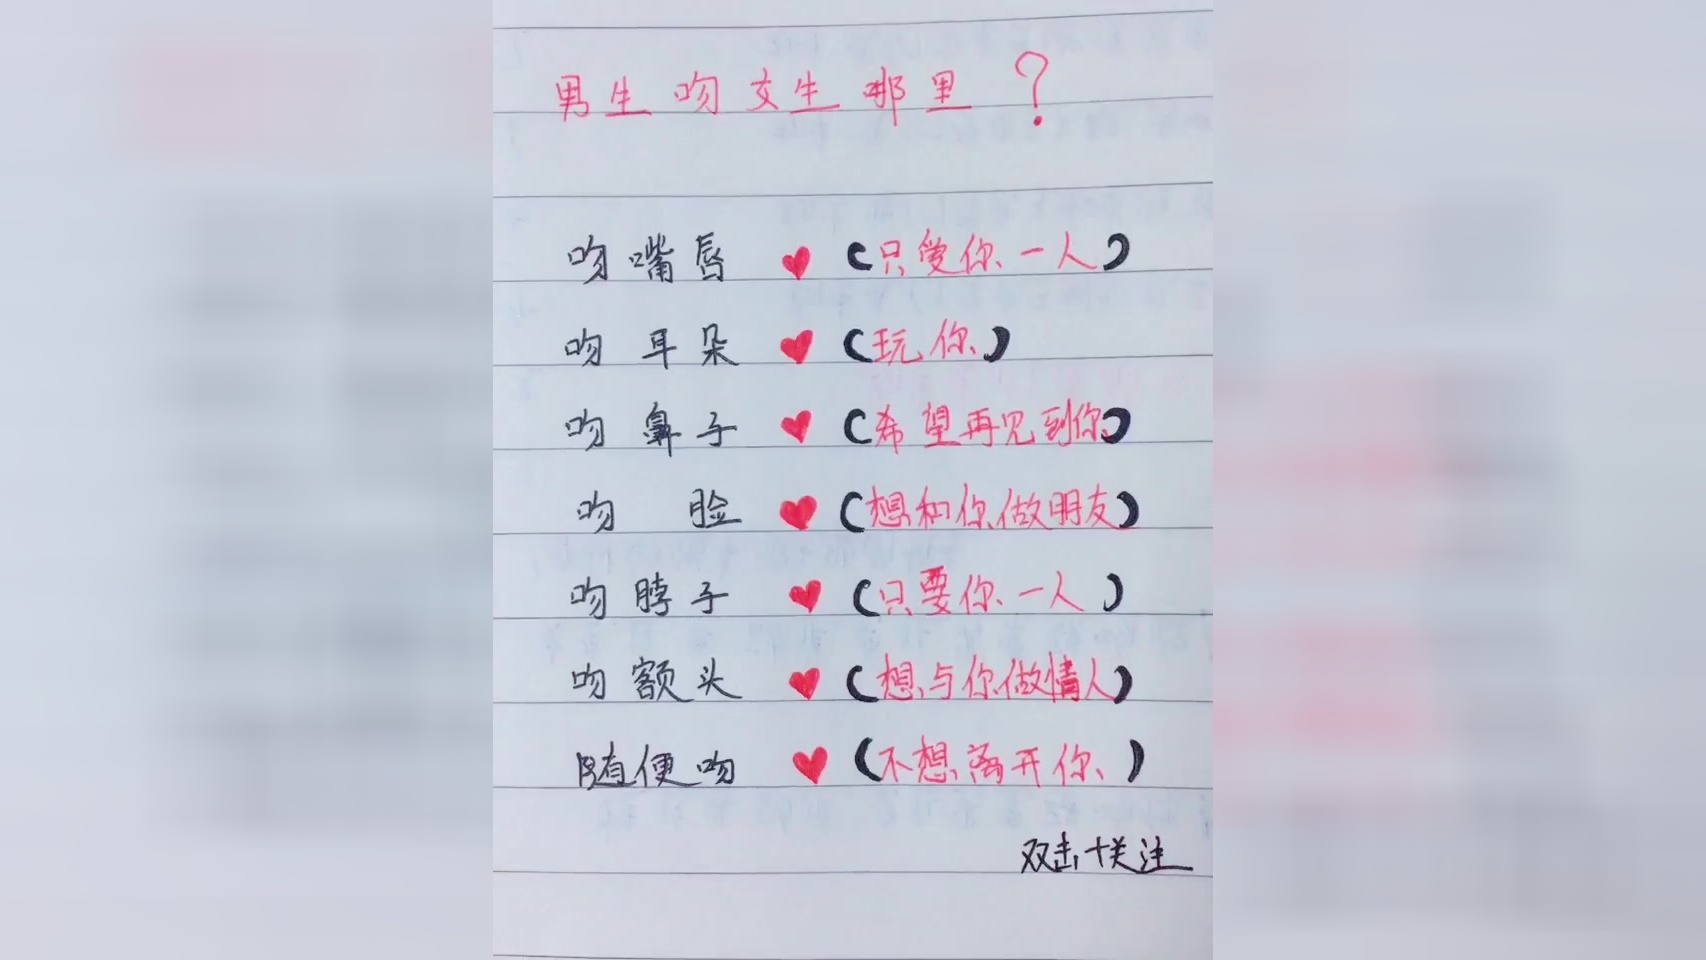 男生吻女生哪里？
吻嘴唇 ♥ (只爱你一人)
吻耳朵 ♥ (玩你)
吻鼻子 ♥ (希望再见到你)
吻 脸 ♥ (想和你做朋友)
吻脖子 ♥ (只要你一人)
吻额头 ♥ (想与你做情人)
随便吻 ♥ (不想离开你)
双击+关注